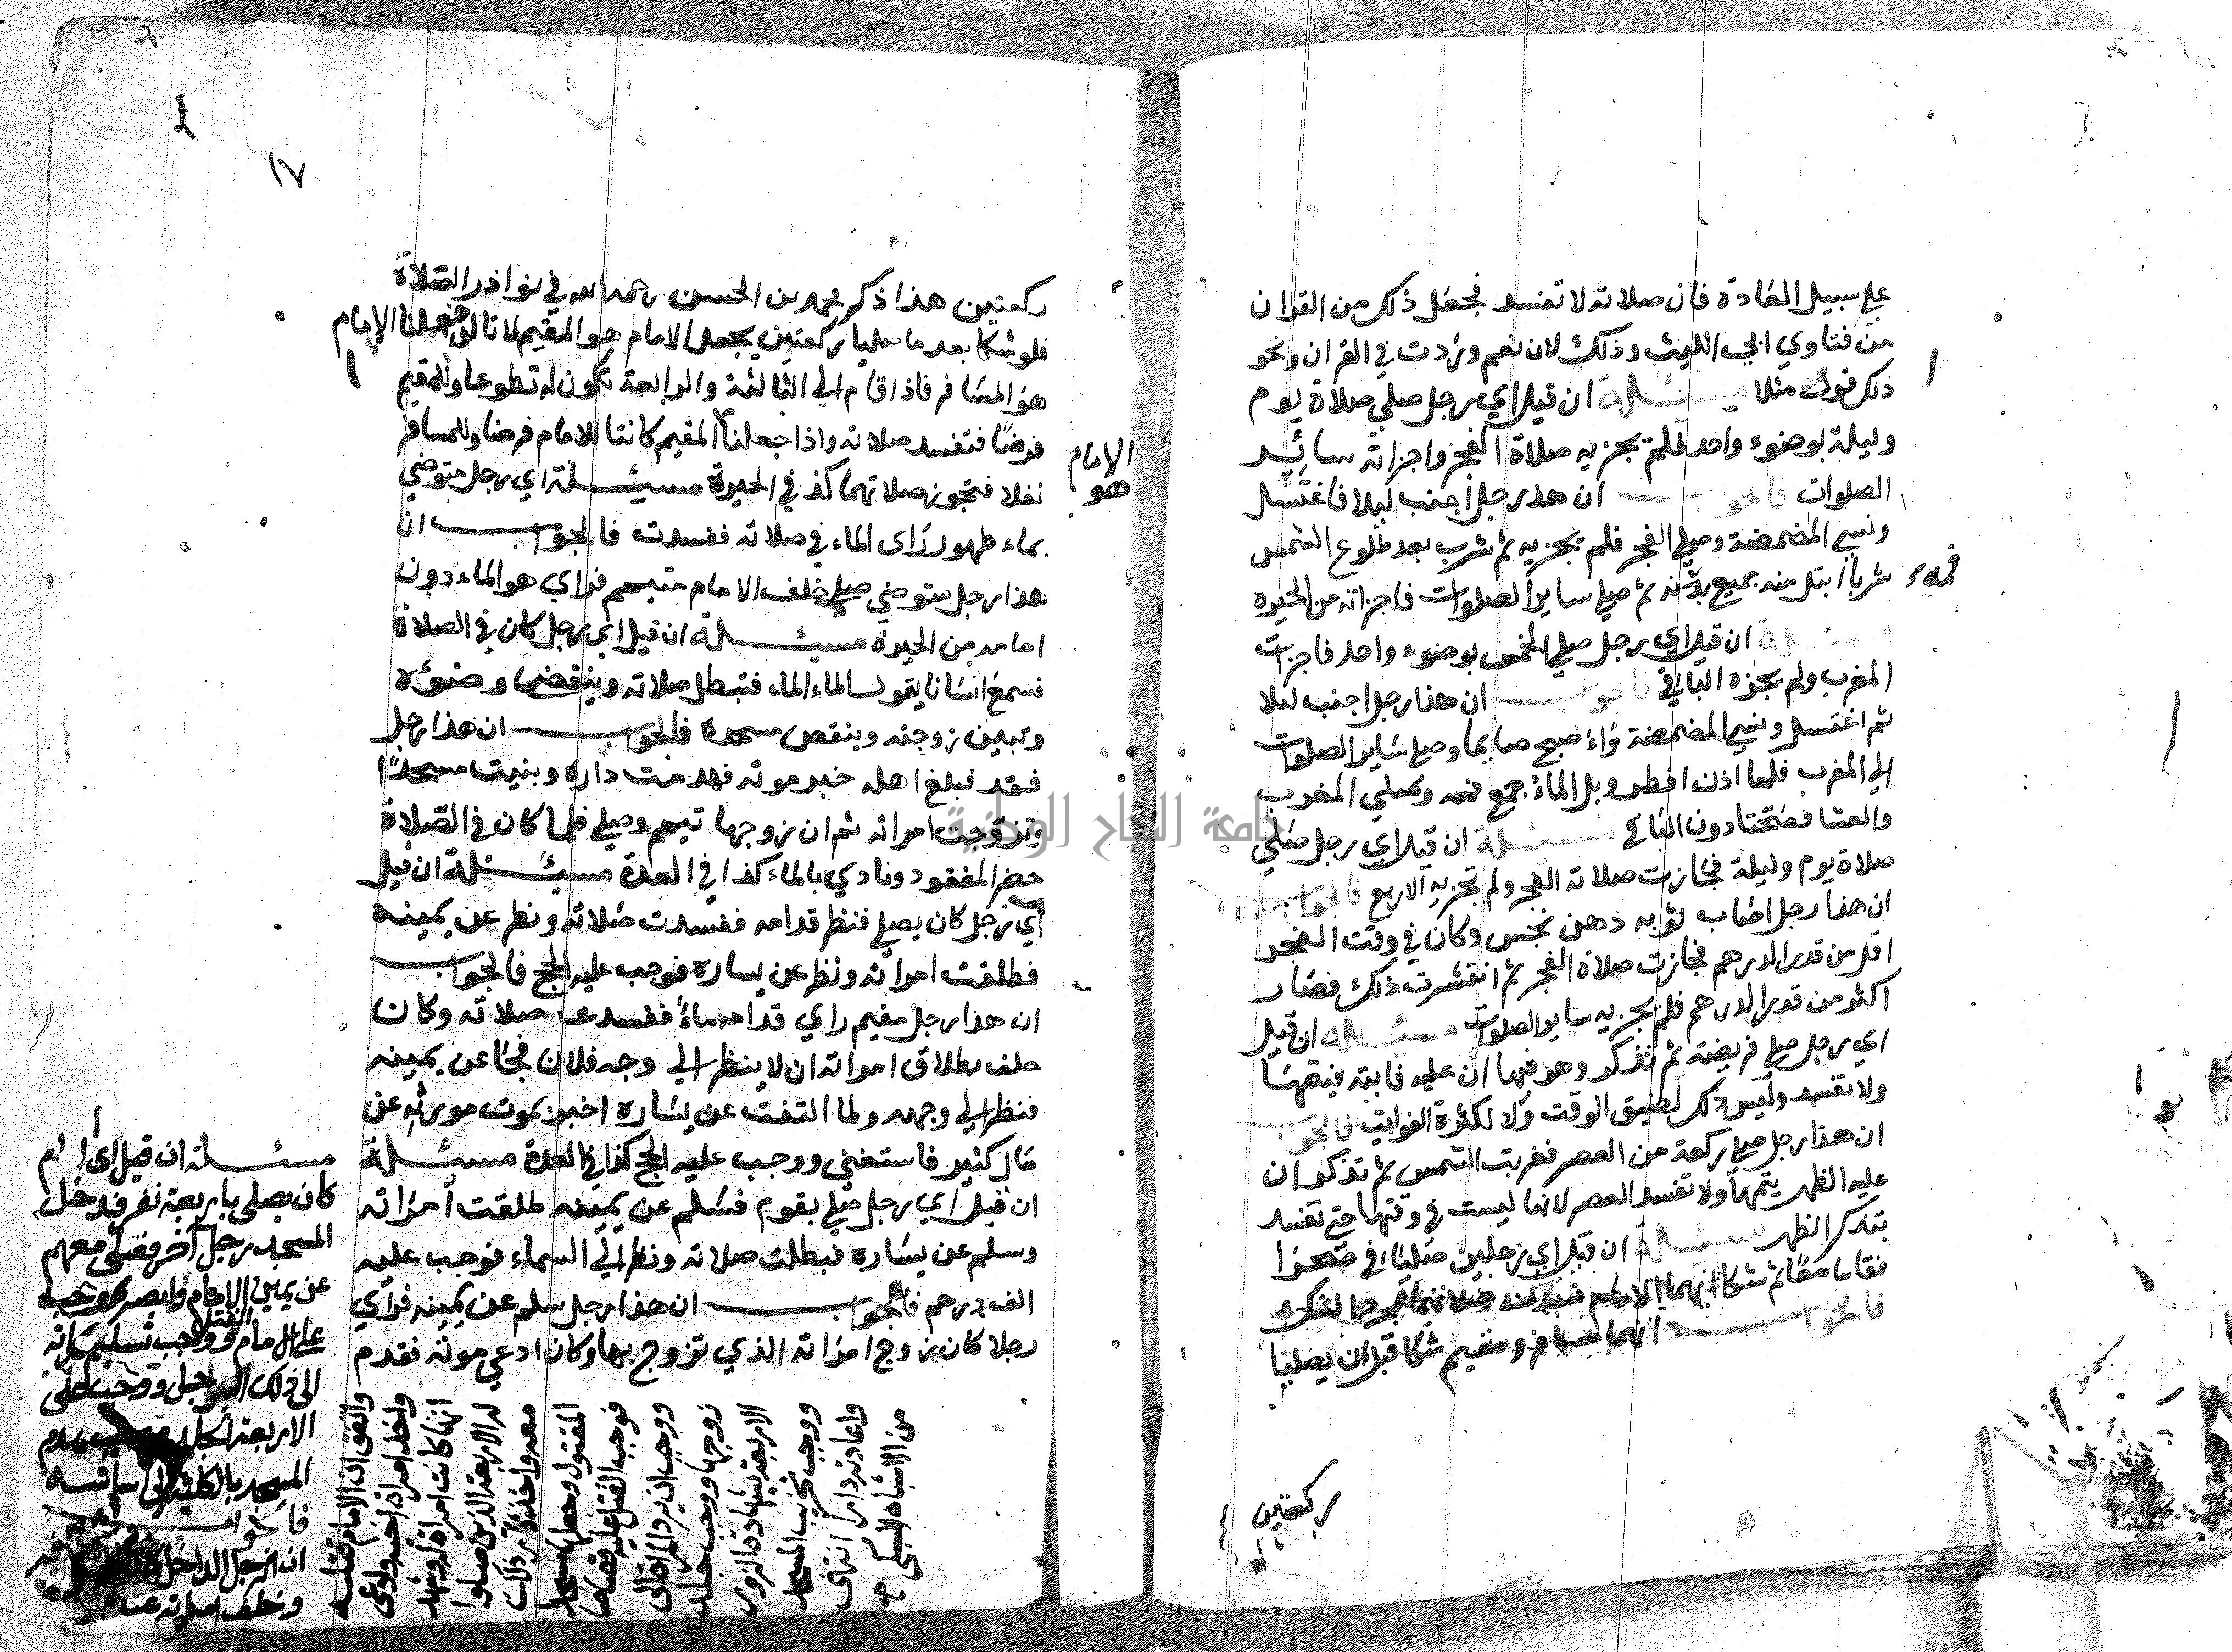 على سبيل العادة فان صلاته لا تفسد فجعل ذلك من القران
من فتاوي ابي الليث وذلك لان نعم وردت في القران ونحو
ذلك قوله مثلا مسئلة ان قيل اي رجل صلي صلاة يوم
وليلة بوضوء واحد فلم يجزيه صلاة الفجر واجزاته سائر
الصلوات فالجواب ان هذا رجل اجنب ليلا فاغتسل
ونسي المضمضة وصلي الفجر فلم يجزيه ثم شرب بعد طلوع الشمس
شربا ابتل منه جميع بدنه ثم صلي ساير الصلوات فاجزاته من الحيرة
فمه
مسئلة ان قيل اي رجل صلي الخمس بوضوء واحد فاجزات
المغرب ولم يجزه الباقي فالجواب ان هذا رجل اجنب ليلا
ثم اغتسل ونسي المضمضة واصبح صايما وصلي ساير الصلوات
الي المغرب فلما اذن افطر وبل الماء جميع فمه وصلي المغرب
والعشا فصحتا دون الباقي مسئلة ان قيل اي رجل صلي
صلاة يوم وليلة فجازت صلاته الفجر ولم تجزيه الاربع فالجواب
ان هذا رجل اصاب ثوبه دهن نجس وكان في وقت الفجر
اقل من قدر الدرهم فجازت صلاة الفجر ثم انتشرت ذلك فصار
اكثر من قدر الدرهم فلم يجزيه ساير الصلوات مسئلة ان قيل
اي رجل صلي فريضة ثم تذكر وهو فيها ان عليه فايتة فيتمها
ولا تفسد وليس ذلك لضيق الوقت ولا لكثرة الفوايت فالجواب
ان هذا رجل صلي ركعة من العصر فغربت الشمس ثم تذكر ان
عليه الظهر يتمها ولا تفسد العصر لانها ليست في وقتها حتى تفسد
بتذكر الظهر مسئلة ان قيل اي رجلين صليا في صحرا
فقاما معا ثم شكا ايهما الامام فسدت صلاتهما بمجرد الشك
فالجواب انهما مسافر ومقيم شكا قبل ان يصليا
ركعتين
١٧
ركعتين هذا ذكر محمد بن الحسن رحمه الله في نوادر الصلاة
فلو شكا بعد ما صليا ركعتين يجعل الامام هو المقيم لانا لو جعلنا الإمام
هو المسافر فاذا قام الي الثالثة والرابعة تكون له تطوعا وللمقيم
فرضا فتفسد صلاته واذا جعلنا المقيم كانتا للامام فرضا وللمسافر
الإمام
هو
نفلا فتجوز صلاتهما كذا في الحيرة مسئلة اي رجل متوضي
بماء طهور راى الماء في صلاته ففسدت فالجواب ان
هذا رجل متوضي صلي خلف الامام متيمم فراي هو الماء دون
امامه من الحيرة مسئلة ان قيل اي رجل كان في الصلاة
فسمع انسانا يقول الماء الماء فتبطل صلاته وينقض وضوءه
وتبين زوجته وينقض مسجده فالجواب ان هذا رجل
فقد فبلغ اهله خبر موته فهدمت داره وبنيت مسجدا
وتزوجت امراته ثم ان زوجها تيمم وصلي فلما كان في الصلاة
حضر المفقود ونادي بالماء كذا في العدة مسئلة ان قيل
اي رجل كان يصلي فنظر قدامه ففسدت صلاته ونظر عن يمينه
فطلقت امراته ونظر عن يساره فوجب عليه الحج فالجواب
ان هذا رجل مقيم راي قدامه ماء ففسدت صلاته وكان
حلف بطلاق امراته ان لا ينظر الي وجه فلان فجا عن يمينه
فنظر الي وجهه ولما التفت عن يساره اخبر بموت مورثه عن
مال كثير فاستغنى ووجب عليه الحج كذا في العدة مسئلة
ان قيل اي رجل صلي بقوم فسلم عن يمينه طلقت امراته
وسلم عن يساره فبطلت صلاته ونظر الي السماء فوجب عليه
الف درهم فالجواب ان هذا رجل سلم عن يمينه فراي
رجلا كان زوج امراته الذي تزوج بها وكان ادعي موته فقدم
مسئلة ان قيل اي امام
كان يصلي باربعة نفر فدخل
المسجد رجل آخر فصلى معهم
عن يمين الامام
على الامام القتل ووجب تسليم امراته
الى ذلك الرجل ووجب على
الاربعة
المسجد بالكلية الى اساسه
فالجواب
ان الرجل الداخل
وخلف امراته عند
واتفق ان الامام قتله
واخذ امراة اخيه وادعى
انها كانت امراة وشهد
له الاربعة الذين صلوا
معه واخذ دار ذلك
المقتول وجعلها مسجد
فوجب القتل عليه قصاصا
ووجب ان يرد المراة الى
زوجها ووجب جلد
الاربعة بشهادة الزور
ووجب تخريب المسجد
واعادته دارا انتهى
من الاشباه للسبكي